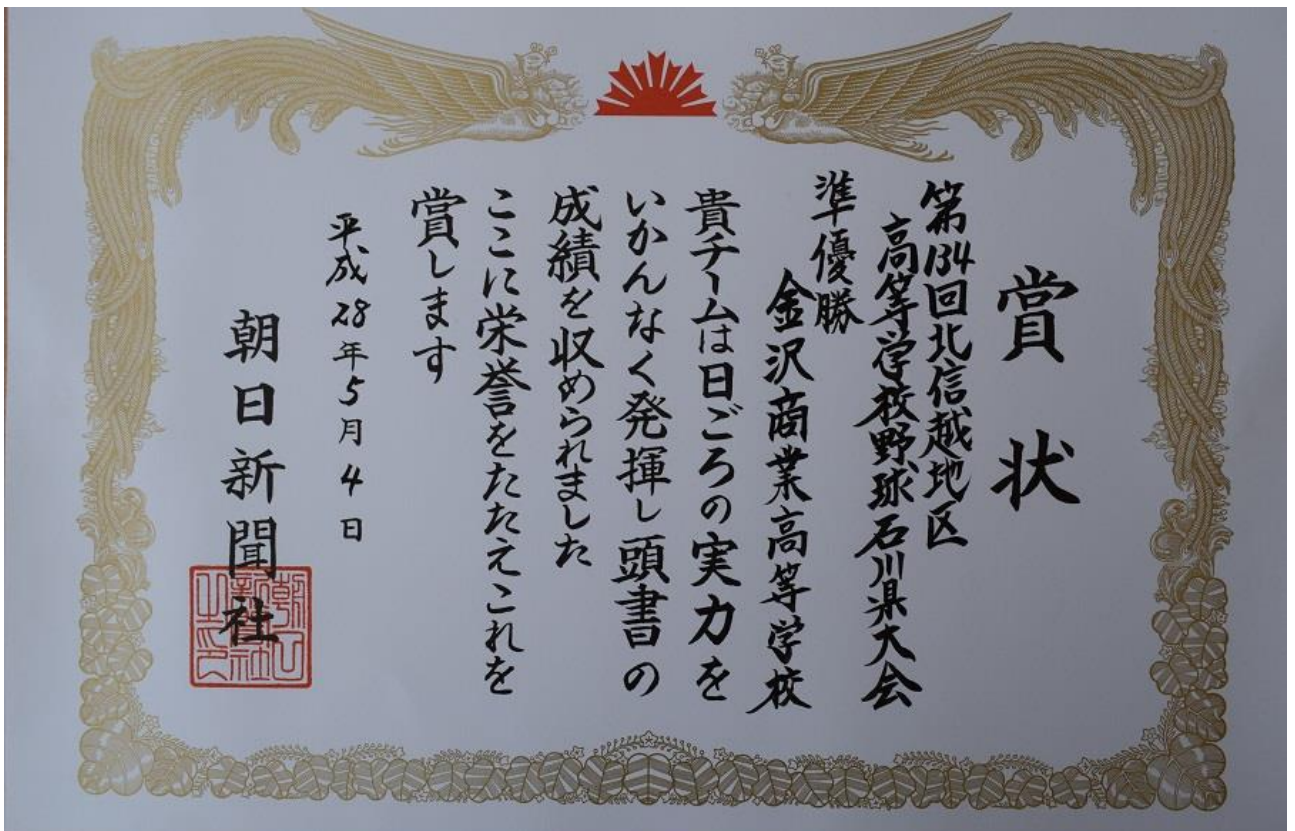 賞状
第134回北信越地区
高等学校野球石川県大会
準優勝
金沢商業高等学校
貴チームは日ごろの実力を
いかんなく発揮し頭書の
成績を収められました
ここに栄誉をたたえこれを
賞します
平成28年5月4日
朝日新聞社
朝日新聞社之印